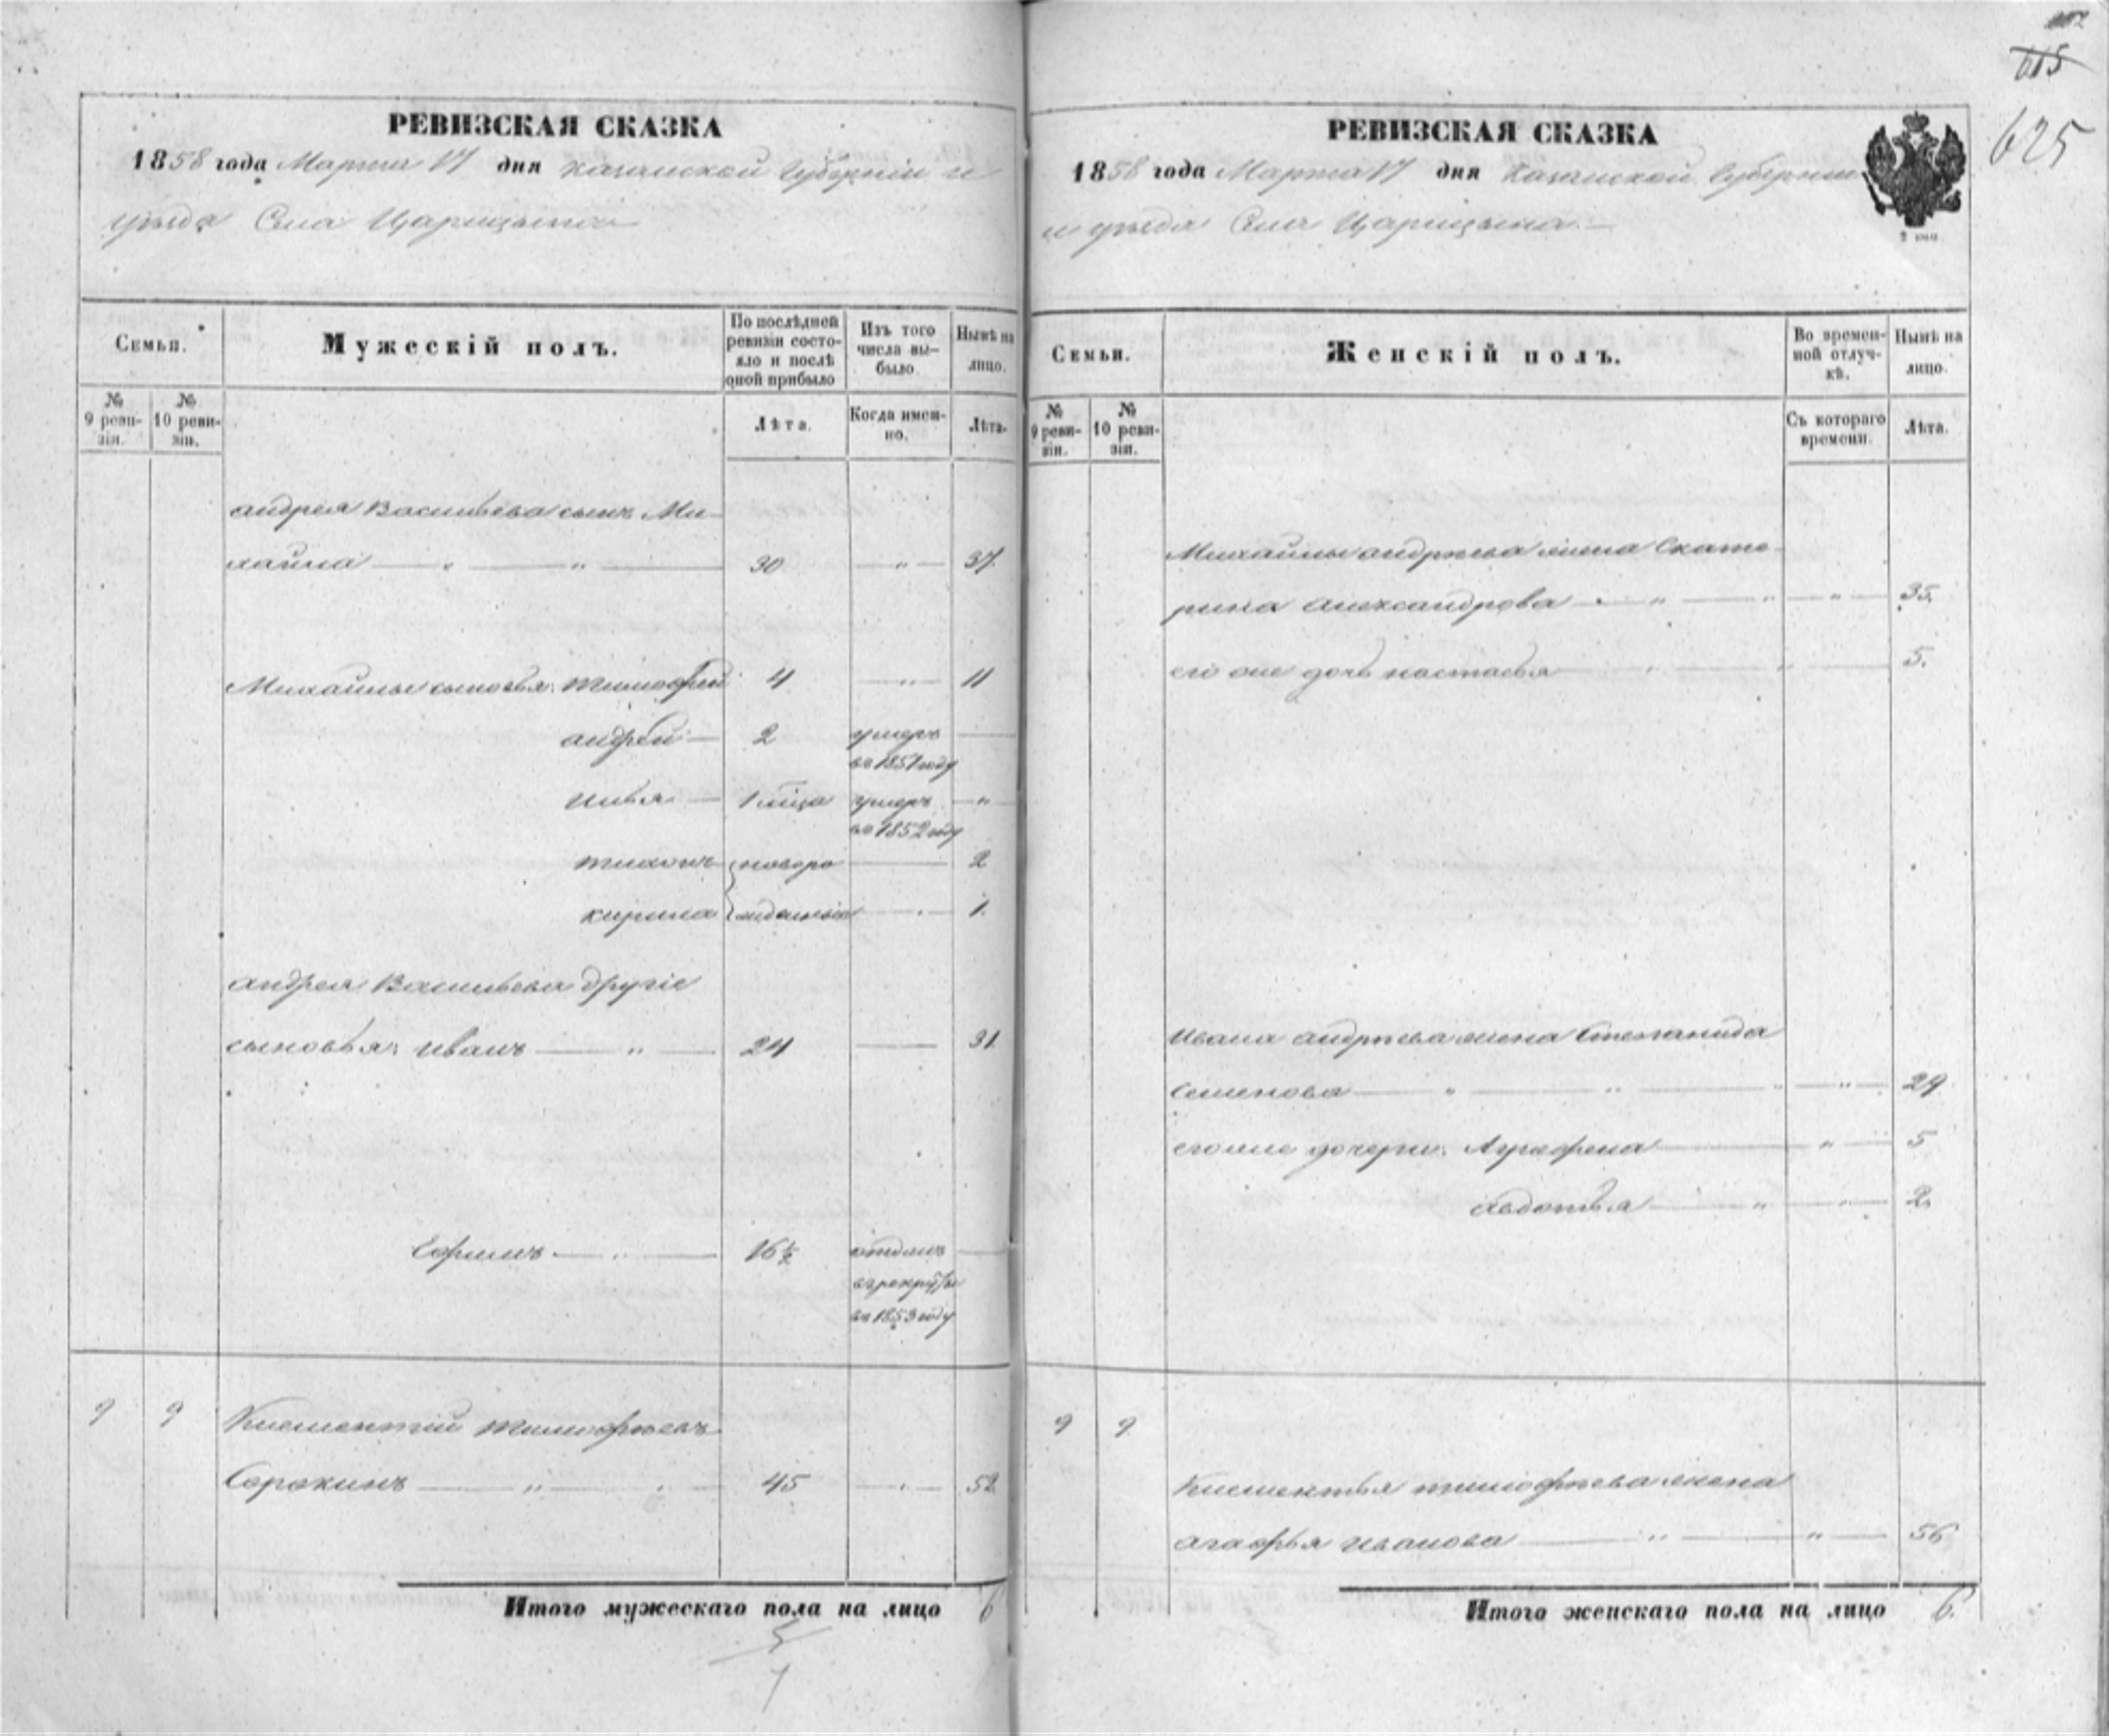 615
625
РЕВИЗСКАЯ СКАЗКА
1858 года Марта 17 дня Казанской Губерніи и
уезда Села Царицына
Семьи.
Мужескій полъ.
По последней ревизіи состояло и послѣ оной прибыло
Изъ того числа выбыло
Нынѣ на лицо.
№ 9 ревизіи.
№ 10 ревизіи.
Лѣта.
Когда именно.
Лѣта.
андрея Васильева сынъ Ми-
хайла — „ — „ — 30 — „ — 37.
Михайлы сыновья: Тимофей 4 — „ — 11
андрей — 2 умеръ —
въ 1851 году
илья — 1 мѣца умеръ — „ —
въ 1852 году
тихонъ новоро — 2
кирила жденныя — 1.
андрея Васильева другіе
сыновья: иванъ — „ — 24 — 31
Ефимъ — „ — 16½ отданъ —
в рекруты
въ 1853 году
9 9 Клементій тимофѣевъ
Сорокинъ — „ — 45 — „ — 52
Итого мужескаго пола на лицо 6
РЕВИЗСКАЯ СКАЗКА
1858 года Марта 17 дня Казанской Губерніи
и уезда Села Царицына. —
2 коп.
Семьи.
Женскій полъ.
Во временной отлучкѣ.
Нынѣ на лицо.
№ 9 ревизіи.
№ 10 ревизіи.
Съ котораго времени.
Лѣта.
Михайлы андрѣева жена Екате-
рина александрова — „ — „ — „ — 35.
его же дочь настасья — 5.
Ивана андрѣева жена Степанида
Семенова — „ — „ — „ — 29
его же дочери: Аграфена — „ — 5
авдотья — „ — „ — 2
9 9
Клементья тимофѣева жена
агафья иванова — „ — „ — 56
Итого женскаго пола на лицо 6.